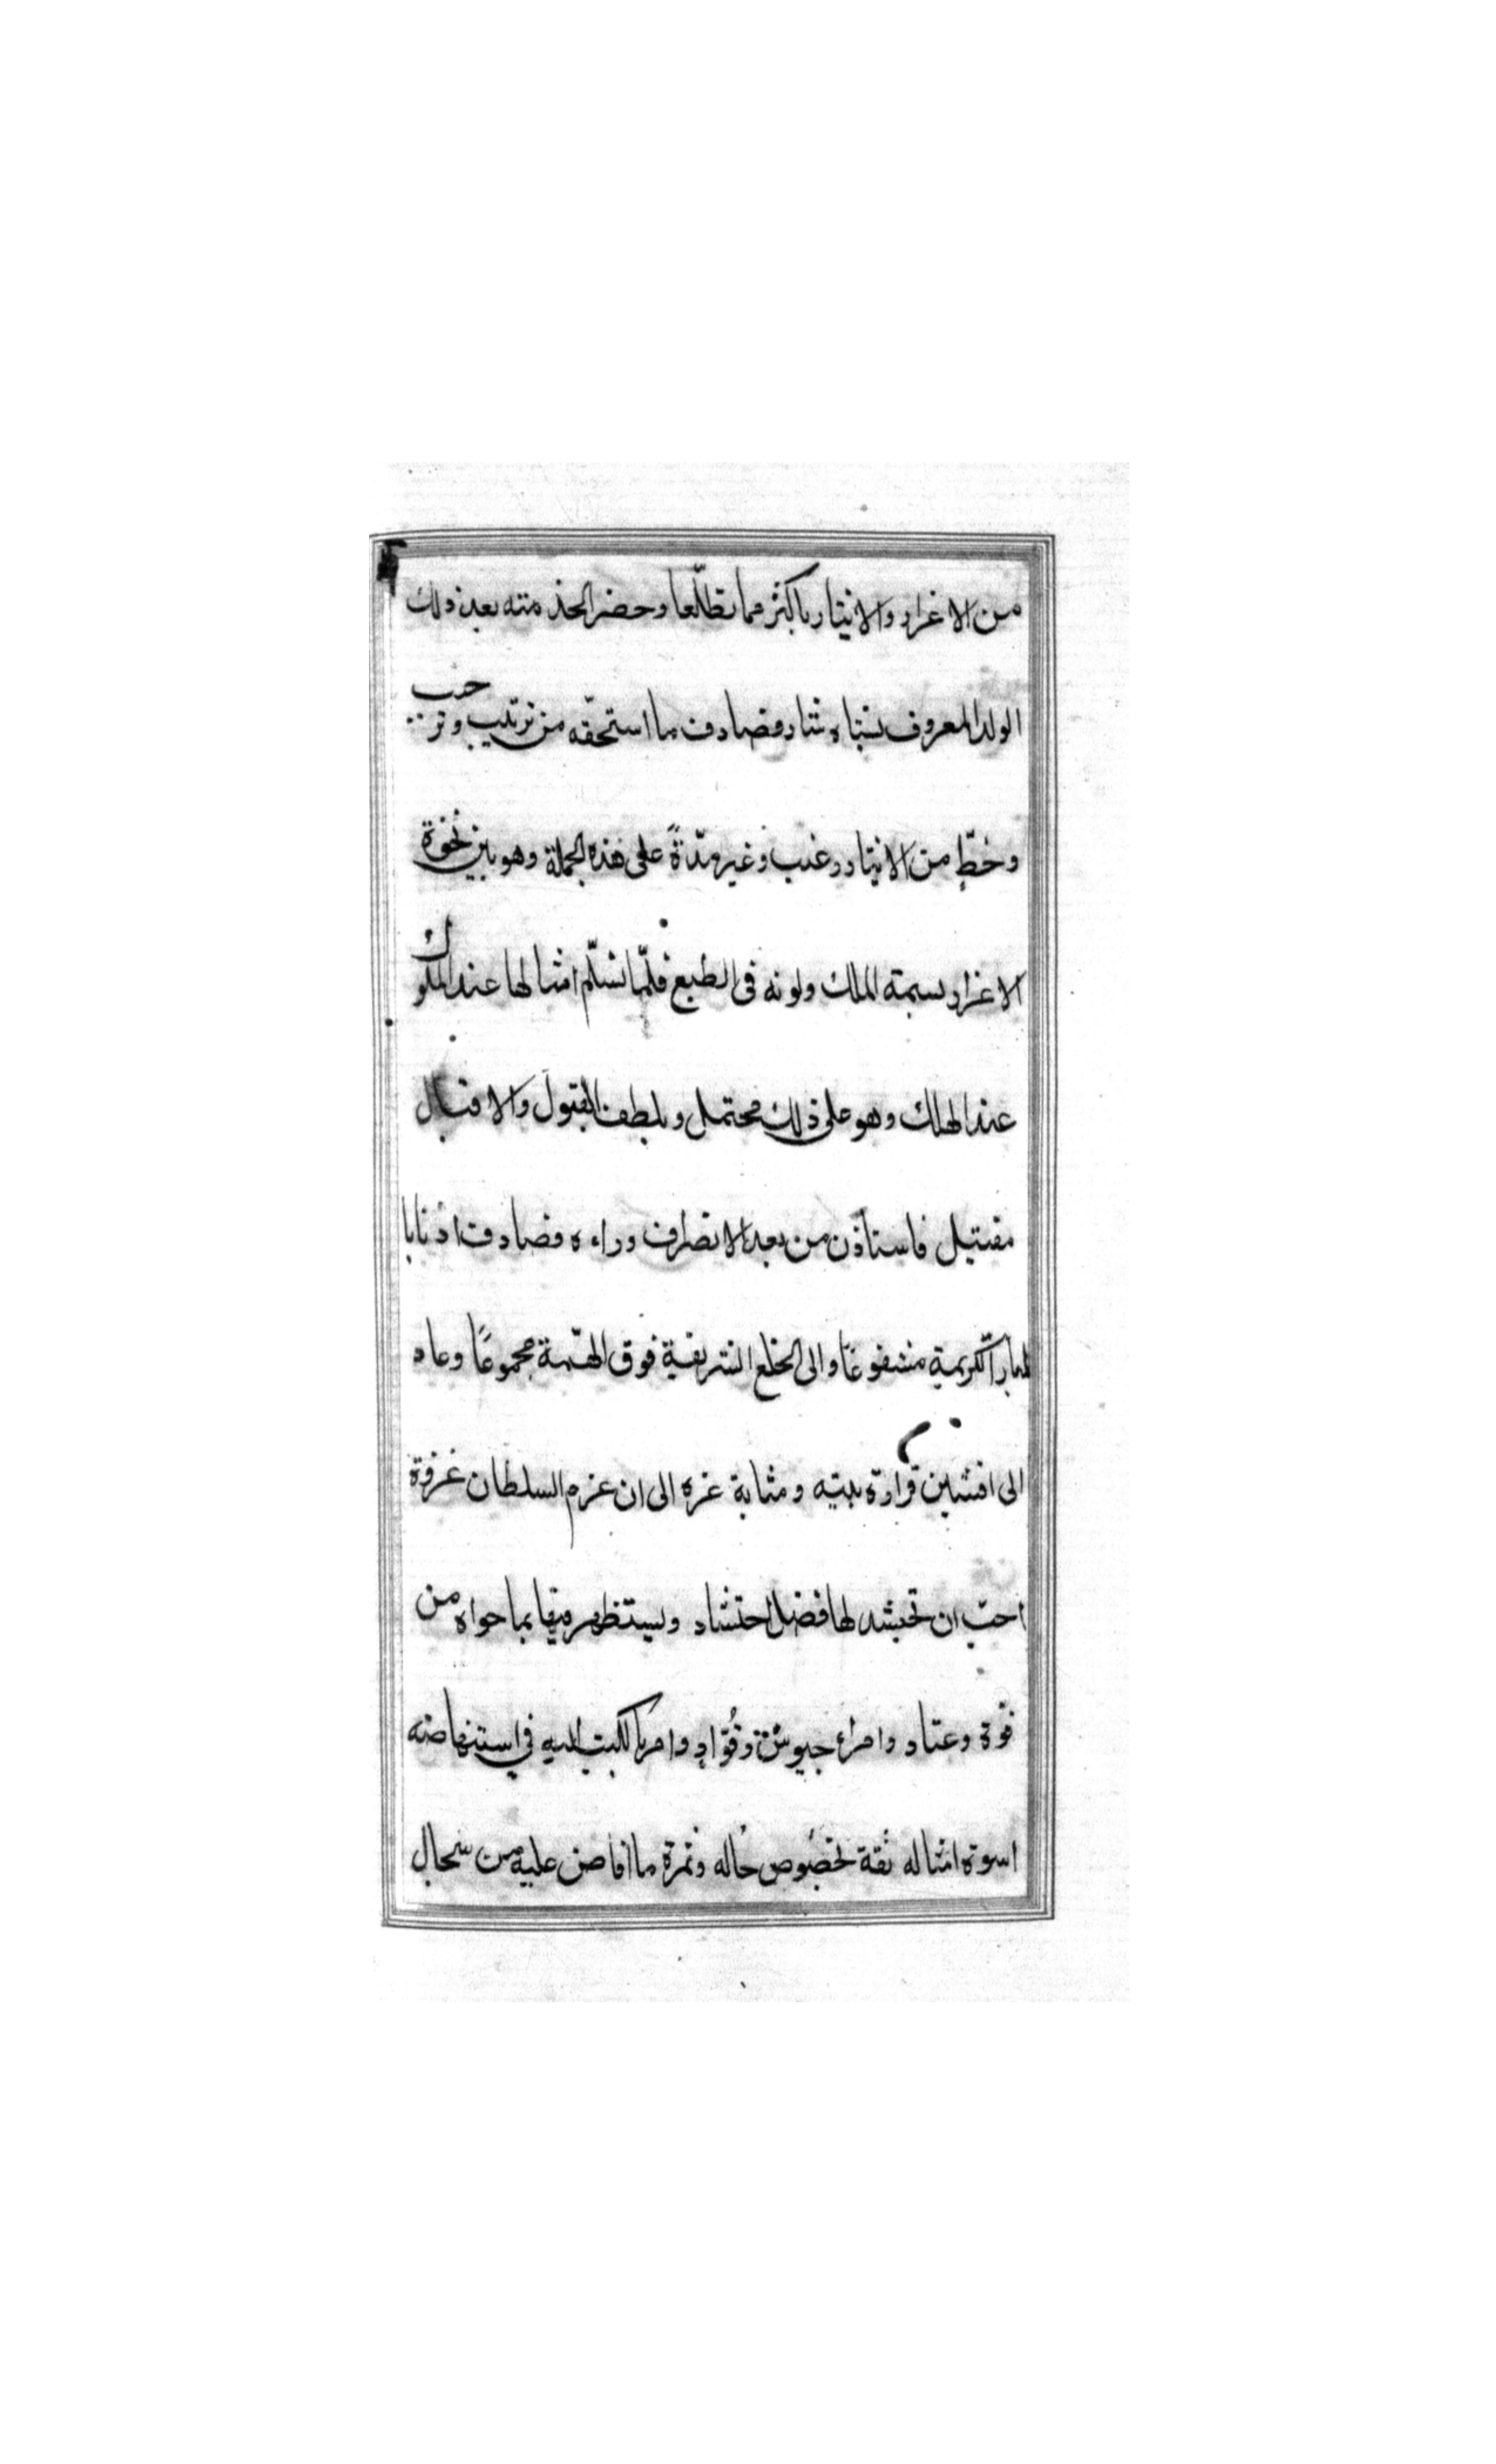 من الاغرار والانيثار باكثر مما تطلّعا وحضر الخذمته بعد ذلك
الولد المعروف بشاه شار فصادف ما استحقّه من ترتيب وترحيب
وخطٍّ من الانيثار رغيب وغبر مدّةً على هذه الجملة وهو بين نخوة
الاغرار بسمة الملك ولونه فى الطبع فلمّا تسلّم امثالها عند الملوك
عند الهلك وهو على ذلك محتمل وبلطف القبول والاقبال
مقتبل فاستاذن من بعد الانصراف وراءه فصادف اذنا با
لمبارّ الكريمة مشفوعًا والى الخلع الشريفة فوق الهمّة مجموعًا وعاد
الى افشين قرارة بيته ومثابة غره الى ان غزم السلطان غزوة
احبّ ان تحشد لها فضل احتشاد ويستظهر فيها بما حواه من
قوّة وعتاد وامراء جيوش وقوّاد وامر بالكتب اليه فى استنهاضه
اسوة امثاله ثقة بخصوص حاله وثمرة ما افاض عليه من سجال